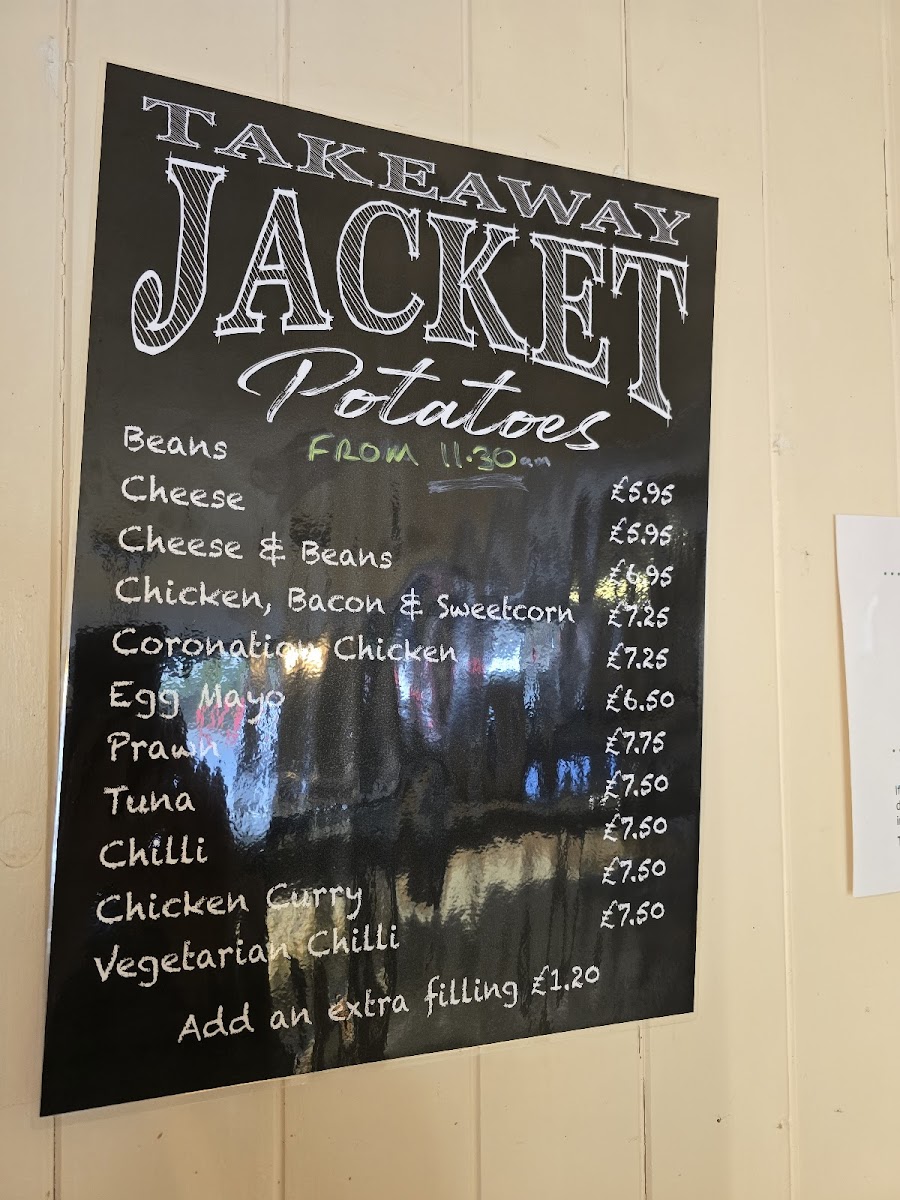 TAKEAWAY
JACKET
Potatoes
FROM 11.30am
Beans £5.95
Cheese £5.95
Cheese & Beans £6.95
Chicken, Bacon & Sweetcorn £7.25
Coronation Chicken £7.25
Egg Mayo £6.50
Prawn £7.75
Tuna £7.50
Chilli £7.50
Chicken Curry £7.50
Vegetarian Chilli £7.50
Add an extra filling £1.20